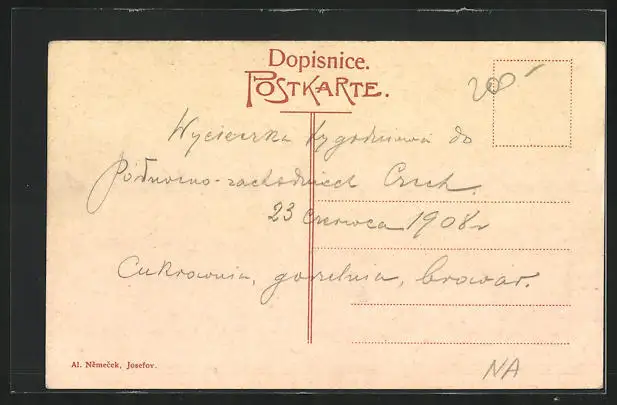 Dopisnice.
POSTKARTE.
200-
Wycieczka tygodniowa do
północno-zachodnich Czech.
23 czerwca 1908 r
Cukrownia, gorzelnia, browar.
Al. Němeček, Josefov.
NA